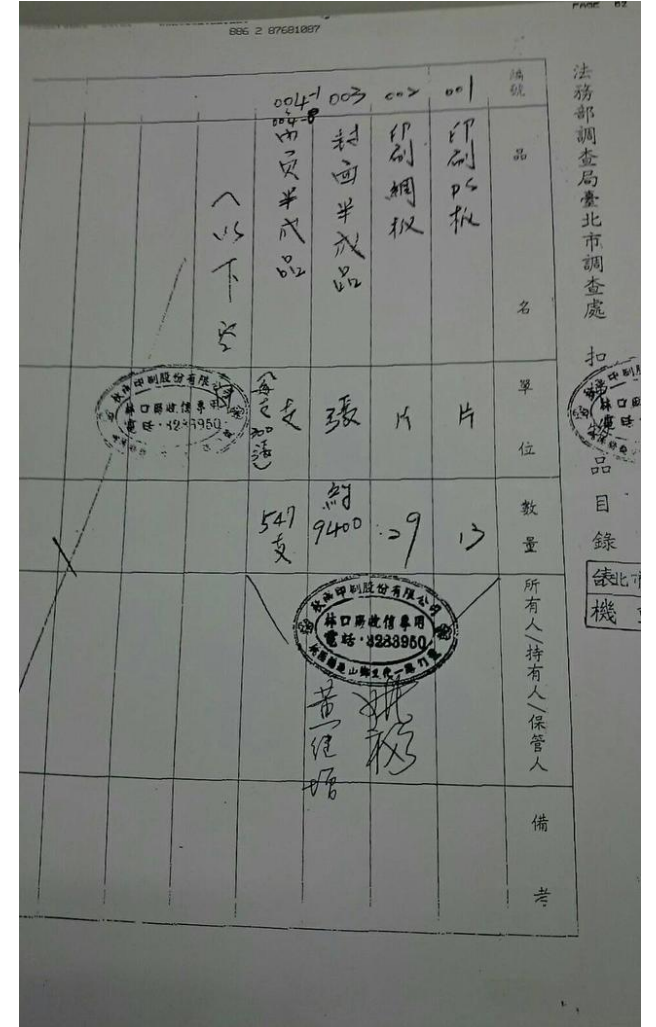 PAGE 02
886 2 87681087
法務部調查局臺北市調查處 扣押物品目錄
編號 品名 單位 數量 所有人/持有人/保管人 備考
001 印刷PS板 片 13
002 印刷網板 片 29
003 封面半成品 張 約9400
004-1 004-8 內頁半成品 支 (每支300張) 547支
以下空
秋雨印刷股份有限公司
林口廠收信專用
電話·3283950
秋雨印刷股份有限公司
林口廠收信專用
電話·3283950
黃
機